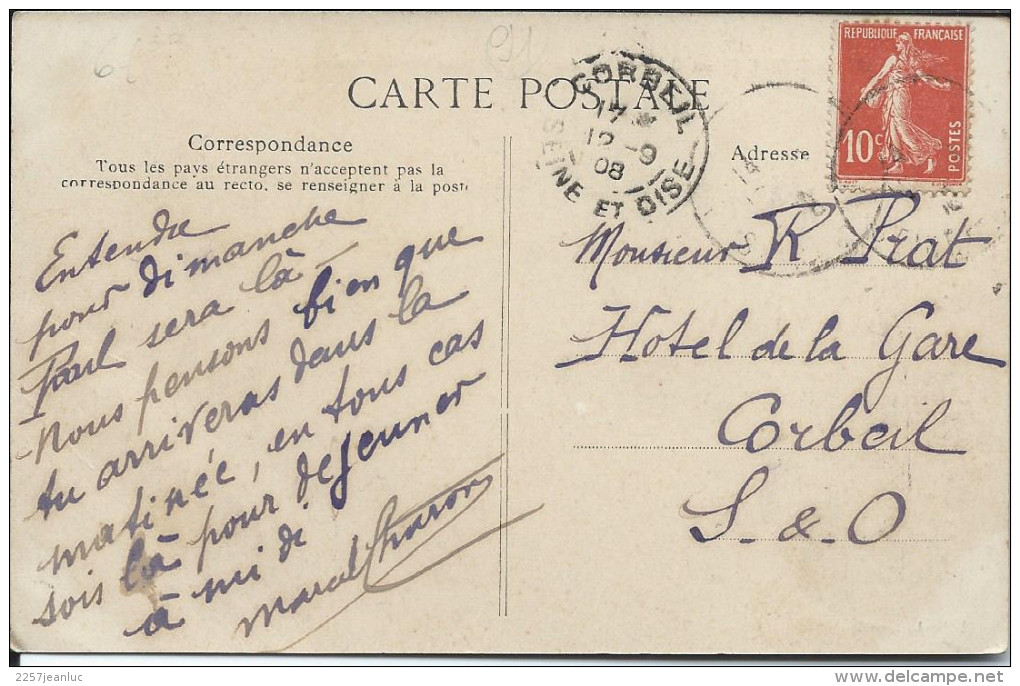 91
CARTE POSTALE
Correspondance
Tous les pays étrangers n'acceptent pas la
correspondance au recto, se renseigner à la poste
Adresse
CORBEIL
17 *
12 -9
08
SEINE ET OISE
REPUBLIQUE FRANÇAISE
10c
POSTES
Entendu
pour dimanche
Paul sera là -
Nous pensons bien que
tu arriveras dans la
matinée, en tous cas
sois là pour dejeuner
à midi
Marcel Charon
Monsieur R Prat
Hotel de la Gare
Corbeil
S. & O
2257jeanluc
delcampe.net